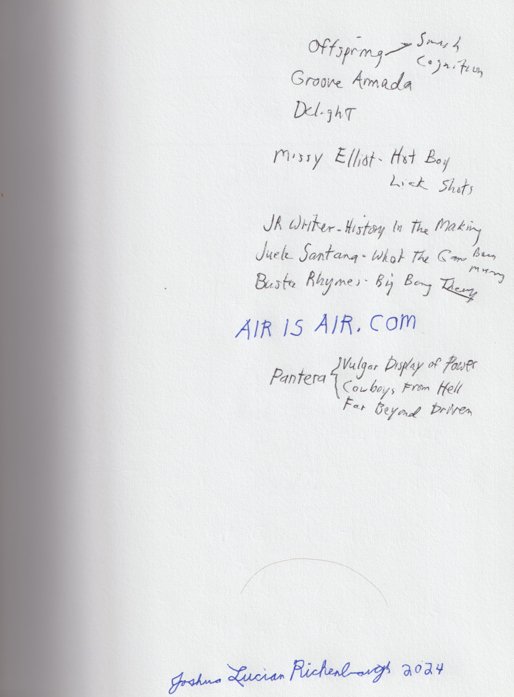 Offspring Smash
Cognition
Groove Armada
Delight
Missy Elliot - Hot Boy
Lick Shots
JR Writer - History In The Making
Juelz Santana - What The Game Been
Missing
Busta Rhymes - Big Bang Theory
AIR IS AIR. COM
Pantera { Vulgar Display of Power
Cowboys From Hell
Far Beyond Driven
Joshua Lucian Richenbaugh 2024